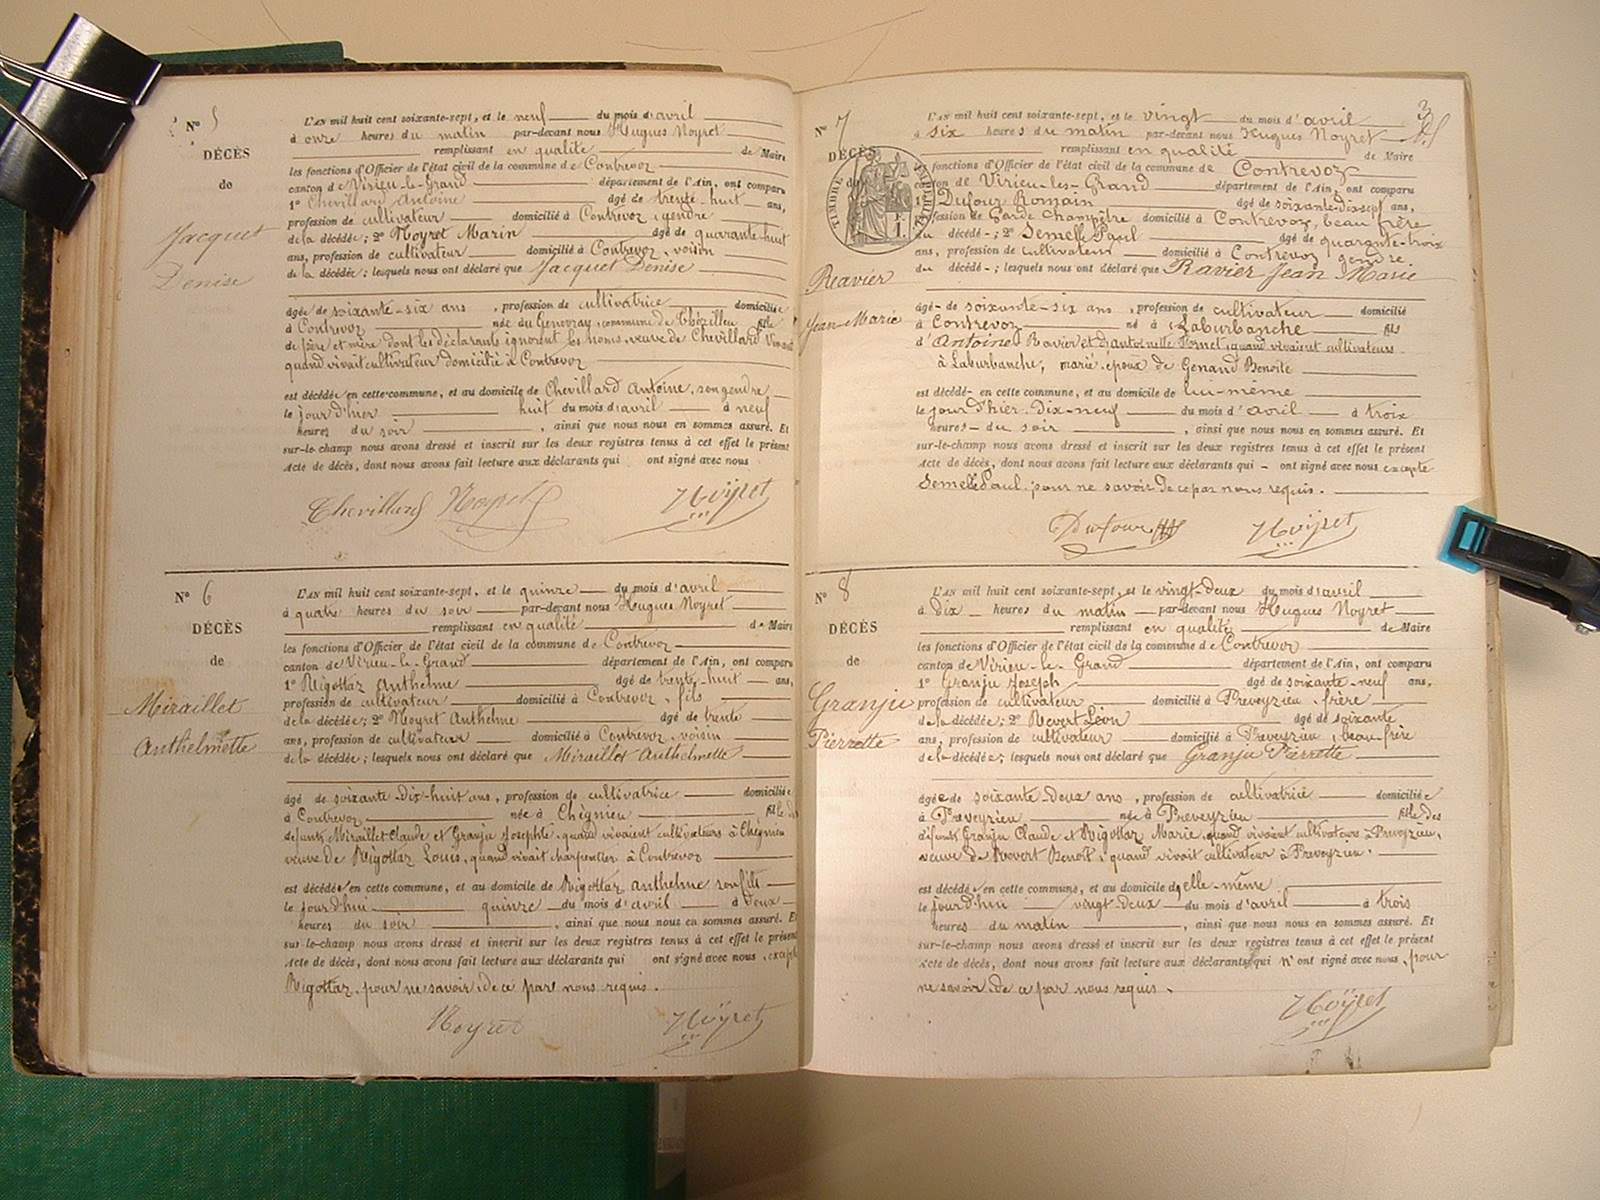 N° 5
DÉCÈS
de
Jacquet
Denise
L'AN mil huit cent soixante-sept, et le neuf du mois d'avril
à onze heures du matin par-devant nous Hugues Noyret
remplissant en qualité de Maire
les fonctions d'Officier de l'état civil de la commune de Contrevoz
canton de Virieu-le-Grand département de l'Ain, ont comparu
1° Chevillard Antoine âgé de trente-huit ans,
profession de cultivateur domicilié à Contrevoz, gendre
de la décédée; 2° Noyret Marin âgé de quarante-huit
ans, profession de cultivateur domicilié à Contrevoz, voisin
de la décédée; lesquels nous ont déclaré que Jacquet Denise
âgée de soixante-six ans, profession de cultivatrice domiciliée
à Contrevoz née au Genevray, commune de Thézilleu fille
de père et mère dont les déclarants ignorent les noms, veuve de Chevillard
quand vivait cultivateur domicilié à Contrevoz
est décédée en cette commune, et au domicile de Chevillard Antoine, son gendre
le jour d'hier huit du mois d'avril à neuf
heures du soir, ainsi que nous nous en sommes assuré. Et
sur-le-champ nous avons dressé et inscrit sur les deux registres tenus à cet effet le présent
Acte de décès, dont nous avons fait lecture aux déclarants qui ont signé avec nous
Chevillard Noyret Noÿret
N° 6
DÉCÈS
de
Miraillet
Anthelmette
L'AN mil huit cent soixante-sept, et le quinze du mois d'avril
à quatre heures du soir par-devant nous Hugues Noyret
remplissant en qualité de Maire
les fonctions d'Officier de l'état civil de la commune de Contrevoz
canton de Virieu-le-Grand département de l'Ain, ont comparu
1° Rigottaz Anthelme âgé de trente-huit ans,
profession de cultivateur domicilié à Contrevoz, fils
de la décédée; 2° Noyret Anthelme âgé de trente
ans, profession de cultivateur domicilié à Contrevoz, voisin
de la décédée; lesquels nous ont déclaré que Miraillet Anthelmette
âgé de soixante-dix-huit ans, profession de cultivatrice domiciliée
à Contrevoz née à Chègnieu fille des
défunts Miraillet Claude et Granju Josephte, quand vivaient cultivateurs à Chègnieu
veuve de Rigottaz Louis, quand vivait charpentier à Contrevoz
est décédée en cette commune, et au domicile de Rigottaz Anthelme son fils
le jour d'hui quinze du mois d'avril à deux
heures du soir, ainsi que nous nous en sommes assuré. Et
sur-le-champ nous avons dressé et inscrit sur les deux registres tenus à cet effet le présent
Acte de décès, dont nous avons fait lecture aux déclarants qui ont signé avec nous, excepté
Rigottaz, pour ne savoir, de ce par nous requis.
Noyret Noÿret
3
N° 7
DÉCÈS
de
TIMBRE IMPÉRIAL
Ravier
Jean-Marie
L'AN mil huit cent soixante-sept, et le vingt du mois d'avril
à six heures du matin par-devant nous Hugues Noyret
remplissant en qualité de Maire
les fonctions d'Officier de l'état civil de la commune de Contrevoz
canton de Virieu-les-Grand département de l'Ain, ont comparu
1° Dufour Romain âgé de soixante-dix-sept ans,
profession de Garde champêtre domicilié à Contrevoz, beau frère
du décédé; 2° Semelle Paul âgé de quarante-trois
ans, profession de cultivateur domicilié à Contrevoz gendre
du décédé; lesquels nous ont déclaré que Ravier Jean Marie
âgé de soixante-six ans, profession de cultivateur domicilié
à Contrevoz né à Laburbanche fils
d'Antoine Ravier et d'antoinette Fornel, quand vivaient cultivateurs
à Laburbanche, marié, époux de Genand Benoîte
est décédé en cette commune, et au domicile de lui-même
le jour d'hier, dix-neuf du mois d'avril à trois
heures du soir, ainsi que nous nous en sommes assuré. Et
sur-le-champ nous avons dressé et inscrit sur les deux registres tenus à cet effet le présent
Acte de décès, dont nous avons fait lecture aux déclarants qui ont signé avec nous excepté
Semelle Paul, pour ne savoir, de ce par nous requis.
Dufour Noÿret
N° 8
DÉCÈS
de
Granju
Pierrette
L'AN mil huit cent soixante-sept, et le vingt-deux du mois d'avril
à dix heures du matin par-devant nous Hugues Noyret
remplissant en qualité de Maire
les fonctions d'Officier de l'état civil de la commune de Contrevoz
canton de Virieu-le-Grand département de l'Ain, ont comparu
1° Granju Joseph âgé de soixante-neuf ans,
profession de cultivateur domicilié à Preveyzieu, frère
de la décédée; 2° Revert Léon âgé de soixante
ans, profession de cultivateur domicilié à Preveyzieu, beau-frère
de la décédée; lesquels nous ont déclaré que Granju Pierrette
âgée de soixante-deux ans, profession de cultivatrice domiciliée
à Preveyzieu née à Preveyzieu fille des
défunts Granju Claude et Rigottaz Marie, quand vivaient cultivateurs à Preveyzieu,
veuve de Revert Benoît, quand vivait cultivateur à Preveyzieu.
est décédée en cette commune, et au domicile d'elle-même
le jour d'hui vingt-deux du mois d'avril à trois
heures du matin, ainsi que nous nous en sommes assuré. Et
sur-le-champ nous avons dressé et inscrit sur les deux registres tenus à cet effet le présent
Acte de décès, dont nous avons fait lecture aux déclarants qui n'ont signé avec nous, pour
ne savoir, de ce par nous requis.
Noÿret